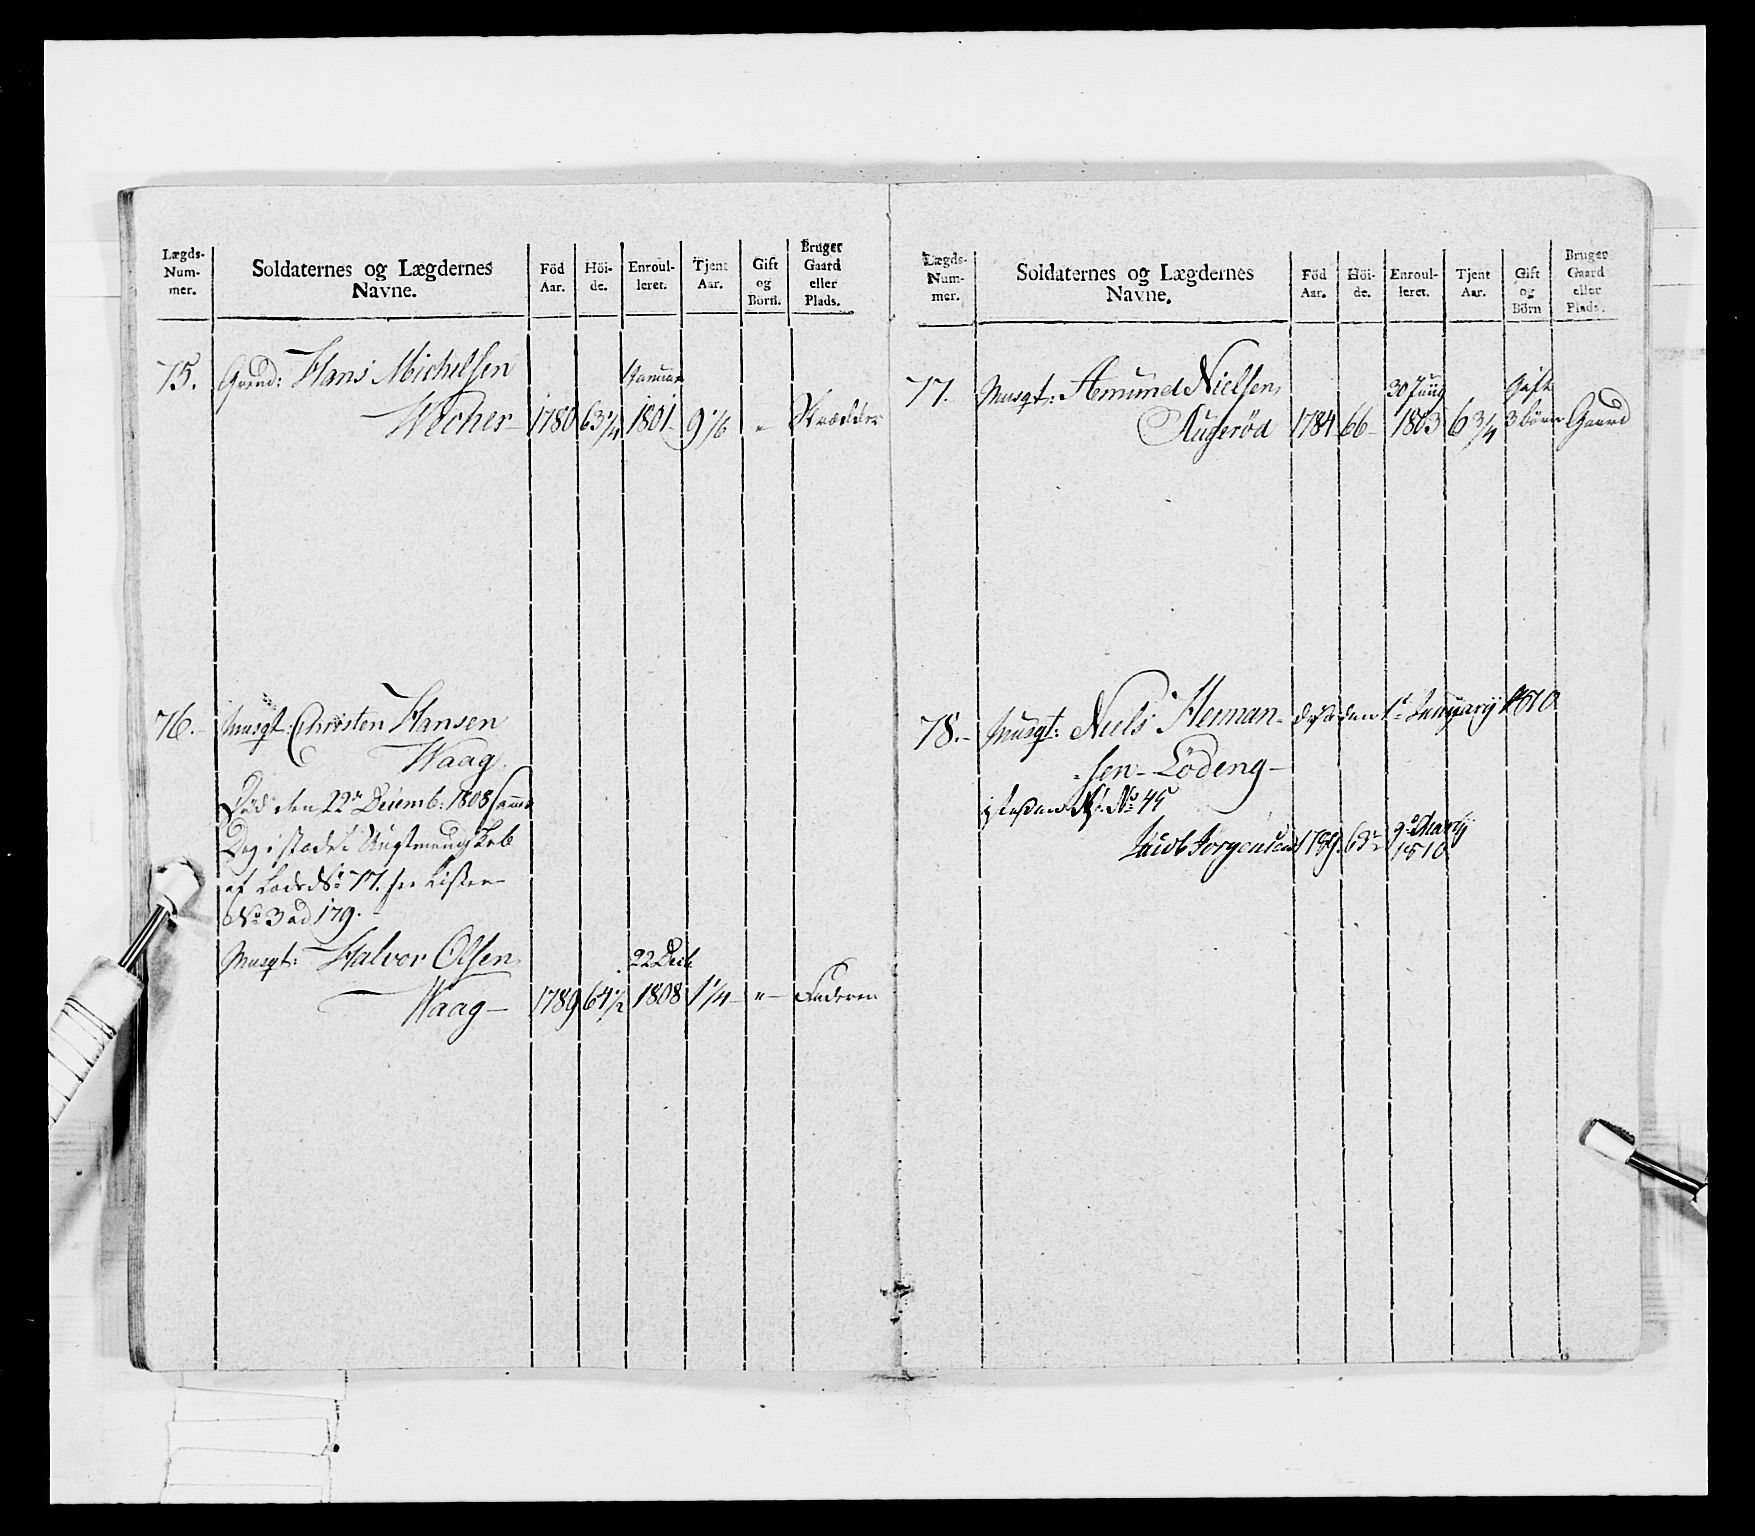 Lægds-
Num-
mer.
Soldaternes og Lægdernes
Navne.
Föd
Aar.
Höi-
de.
Enroul-
leret.
Tjent
Aar.
Gift
og
Börn.
Bruger
Gaard
eller
Plads.
75. Grend: Hans Michelsen
Wecher 1780 63 1/4 Januar 1801 9 1/6 " Skrædder
76. Musqt: Christen Hansen
Waag
Död den 22de Decemb: 1808 samme
Dag i stædet
af No 77. see Listen
No 3 ad 179.
Musqt: Halvor Olsen
Waag 1789 64 1/2 22 Decb 1808 1 1/4 "
Lægds-
Num-
mer.
Soldaternes og Lægdernes
Navne.
Föd
Aar.
Höi-
de.
Enroul-
leret.
Tjent
Aar.
Gift
og
Börn
Bruger
Gaard
eller
Plads.
77. Musqt: Amund Nielsen
Augeröd 1784 66 30 Juny 1803 6 3/4 Gift 3 börn Gaard
78. Musqt: Niels Herman- den 1st January 1810
sen Lödeng
No 45
Jacob Jorgensen 1789 63 1810